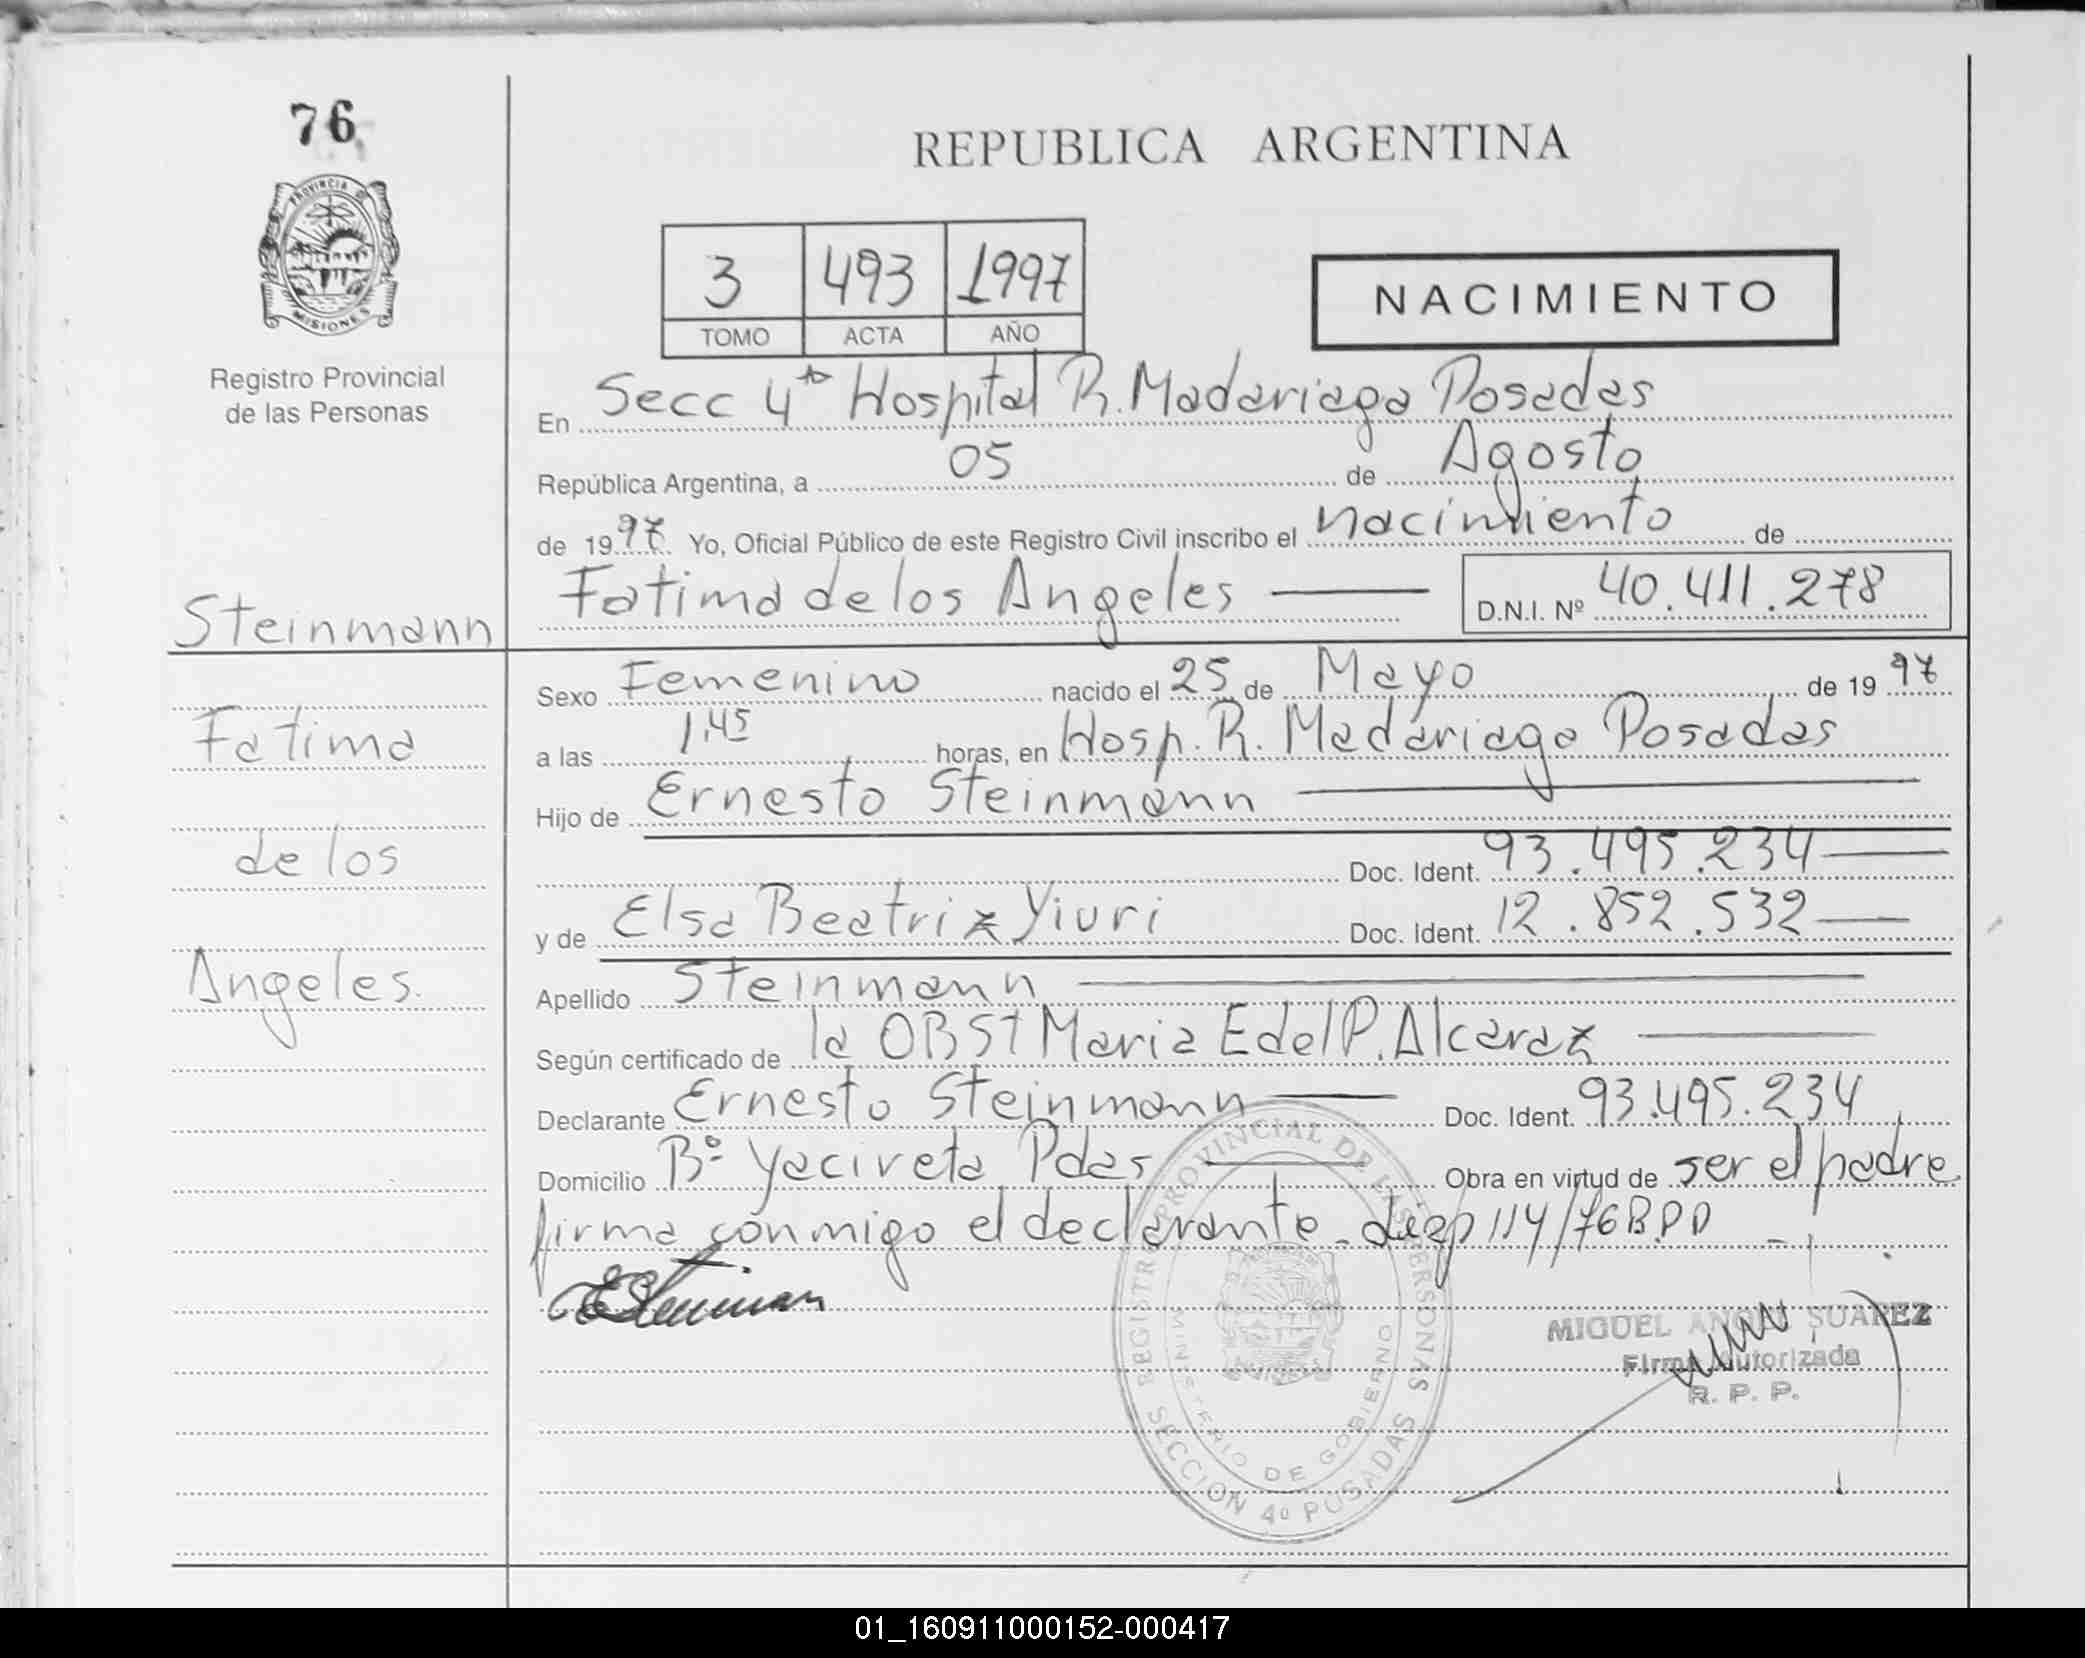 76
PROVINCIA DE
MISIONES
Registro Provincial
de las Personas
REPUBLICA ARGENTINA
3 493 1997
TOMO ACTA AÑO
NACIMIENTO
En Secc 4ta Hospital R. Madariaga Posadas
República Argentina, a 05 de Agosto
de 1997 Yo, Oficial Público de este Registro Civil inscribo el nacimiento de
Fatima de los Angeles
D.N.I. Nº 40.411.278
Steinmann
Fatima
de los
Angeles.
Sexo Femenino nacido el 25 de Mayo de 1997
a las 1,45 horas, en Hosp. R. Madariaga Posadas
Hijo de Ernesto Steinmann
Doc. Ident. 93.495.234
y de Elsa Beatriz Yiuri Doc. Ident. 12.852.532
Apellido Steinmann
Según certificado de la OBST Maria Edel P. Alcaraz
Declarante Ernesto Steinmann Doc. Ident. 93.495.234
Domicilio Bº Yacireta Pdas Obra en virtud de ser el padre
firma conmigo el declarante. 114/76 B.P.D
REGISTRO PROVINCIAL DE LAS PERSONAS
MINISTERIO DE GOBIERNO
SECCION 4º POSADAS
MIGUEL ANGEL SUAREZ
Firma Autorizada
R. P. P.
01_160911000152-000417